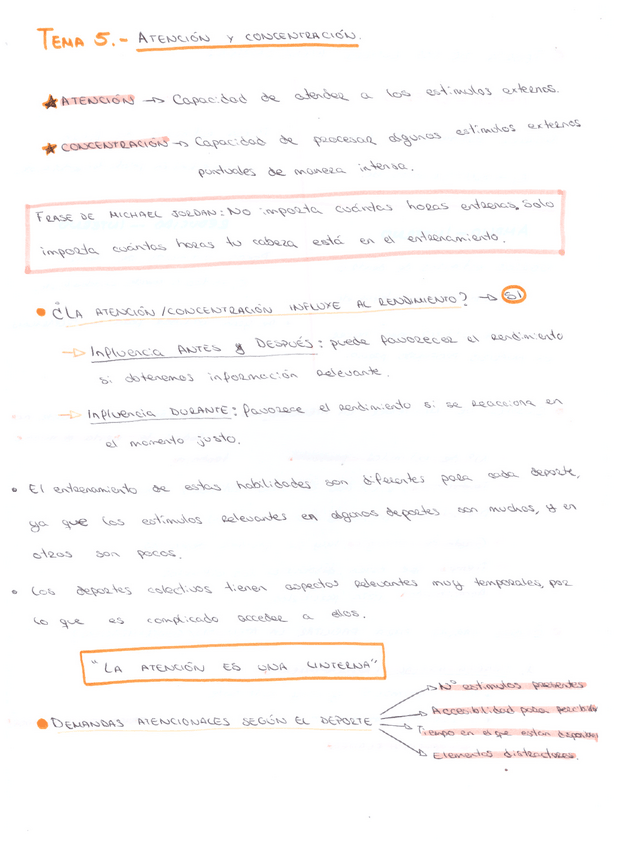 TEMA 5.- ATENCIÓN Y CONCENTRACIÓN.
ATENCIÓN → Capacidad de atender a los estímulos externos.
CONCENTRACIÓN → Capacidad de procesar algunos estímulos externos
puntuales de manera intensa.
FRASE DE MICHAEL JORDAN: No importa cuántas horas entrenas, solo
importa cuántas horas tu cabeza está en el entrenamiento.
¿LA ATENCIÓN/CONCENTRACIÓN INFLUYE AL RENDIMIENTO? → SI
→ Influencia ANTES y DESPUÉS: puede favorecer el rendimiento
si obtenemos información relevante.
→ Influencia DURANTE: favorece el rendimiento si se reacciona en
el momento justo.
• El entrenamiento de estas habilidades son diferentes para cada deporte,
ya que los estímulos relevantes en algunos deportes son muchos, y en
otros son pocos.
• Los deportes colectivos tienen aspectos relevantes muy temporales, por
lo que es complicado acceder a ellos.
"LA ATENCIÓN ES UNA LINTERNA"
DEMANDAS ATENCIONALES SEGÚN EL DEPORTE
→ Nº estímulos presentes
→ Accesibilidad para percibirlos
→ Tiempo en el que están disponibles
→ Elementos distractores.